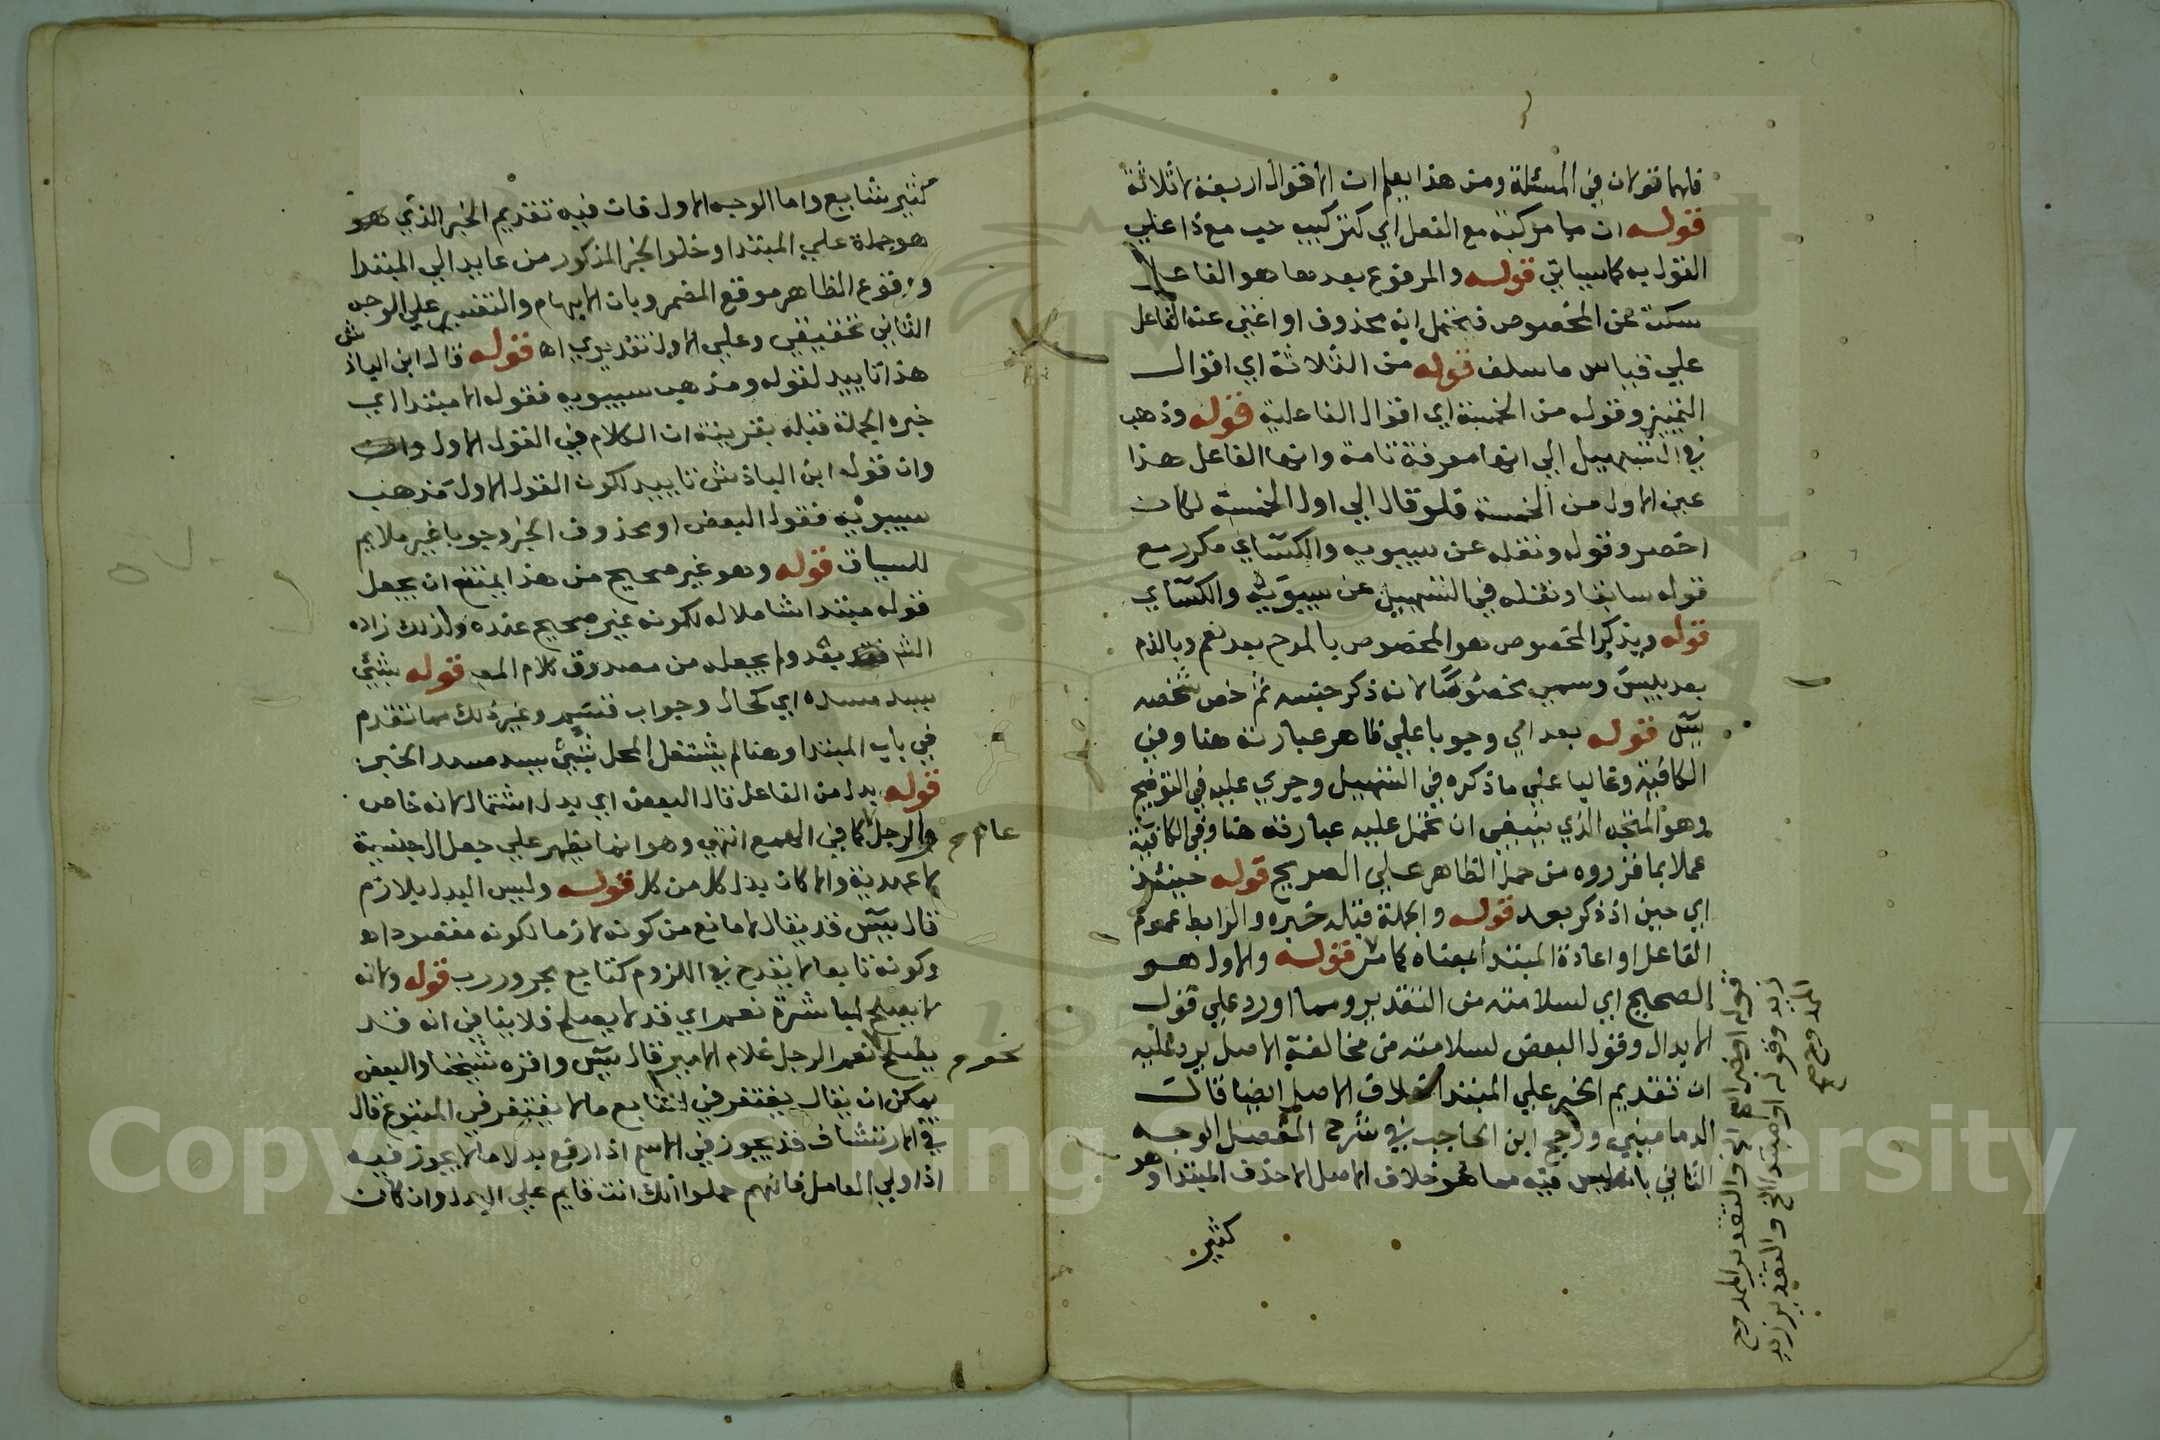 فلهما قولان في المسئلة ومن هذا يعلم ان الاقوال اربعة لا ثلاثة
قوله ان ما مركبة مع الفعل اي كتركيب حب مع ذا علي
القول به كما سياتي قوله والمرفوع بعدها هو الفاعل
سكت عن المخصوص فيحتمل انه محذوف او اغني عنه الفاعل
علي قياس ما سلف قوله من الثلاثة اي اقوال
التمييز وقوله من الخمسة اي اقوال الفاعلية قوله وذهب
في التسهيل الي انها معرفة تامة وانها الفاعل هذا
عين الاول من الخمسة فلو قال الي اول الخمسة لكان
اخصر وقوله ونقله عن سيبويه والكسائي مكرر مع
قوله سابقا ونقله في التسهيل عن سيبويه والكسائي
قوله ويذكر المخصوص هو المخصوص بالمدح بعد نعم وبالذم
بعد بيس وسمي مخصوصا لانه ذكر جنسه ثم خص شخصه
يس قوله بعد اي وجوبا علي ظاهر عبارته هنا وفي
الكافية وغالبا علي ما ذكره في التسهيل وجري عليه في التوضيح
وهو المتجه الذي ينبغي ان تحمل عليه عبارته هنا وفي الكافية
عملا بما قرروه من حمل الظاهر علي الصريح قوله حينئذ
اي حين اذ ذكر بعد قوله والجملة قبله خبره والرابط عموم
الفاعل او اعادة المبتدا بمعناه كما مر قوله والاول هو
الصحيح اي لسلامته من التقدير ومما اورد علي قول
الابدال وقول البعض لسلامته من مخالفة الاصل يرد عليه
ان تقديم الخبر علي المبتدا خلاف الاصل ايضا قال
الدماميني ورجح ابن الحاجب في شرح المفصل الوجه
الثاني بانه ليس فيه مما هو خلاف الاصل الا حذف المبتدا وهو
كثير
قوله او خبر الخ اي والتقدير الممدوح
زيد وقوله او مبتدا الخ والتقدير زيد
الممدوح صح
كثير شايع واما الوجه الاول فان فيه تقديم الخبر الذي
هو جملة علي المبتدا وخلو الخبر المذكور من عايد الي المبتدا
ووقوع الظاهر موقع المضمر وبان الابهام والتفسير علي الوجه
الثاني تحقيقي وعلي الاول تقديري اه قوله قال ابن الباذش
هذا تاييد لقوله ومذهب سيبويه فقوله الا مبتدا اي
خبره الجملة قبله بقرينة ان الكلام في القول الاول
وان قول ابن الباذش تاييد لكون القول الاول مذهب
سيبويه فقول البعض او محذوف الخبر وجوبا غير ملايم
للسياق قوله وهو غير صحيح من هذا يمتنع ان يجعل
قوله مبتدا شاملا له لكونه غير صحيح عنده ولذلك زاده
الش بعد ولم يجعله من مصدوق كلام المص قوله شئ
يسد مسده اي كحال وجواب قسم وغير ذلك مما تقدم
في باب المبتدا وهنا لم يشتغل المحل بشئ يسد مسد الخبر
قوله بدل من الفاعل قال البعض اي بدل اشتمال لانه خاص
والرجل عام صح كما في الهمع انتهي وهو انما يظهر علي جعل ال جنسية
لا عهدية والا كان بدل كل من كل قوله وليس البدل بلازم
قال يس قد يقال لا مانع من كونه لازما لكونه مقصودا اه
وكونه تابعا لا يقدح في اللزوم كتابع مجرور رب قوله ولانه
لا يصلح لمباشرة نعم اي قد لا يصلح فلا ينافي انه قد
يصلح نحو صح نعم الرجل غلام الامير قال يس واقره شيخنا والبعض
يمكن ان يقال يغتفر في التابع ما لا يغتفر في المتبوع قال
في الارتشاف قد يجوز في الاسم اذا وقع بدلا ما لا يجوز فيه
اذا ولي العامل فانهم حملوا انك انت قايم علي البدل وان كان
Copyright © King Saud University